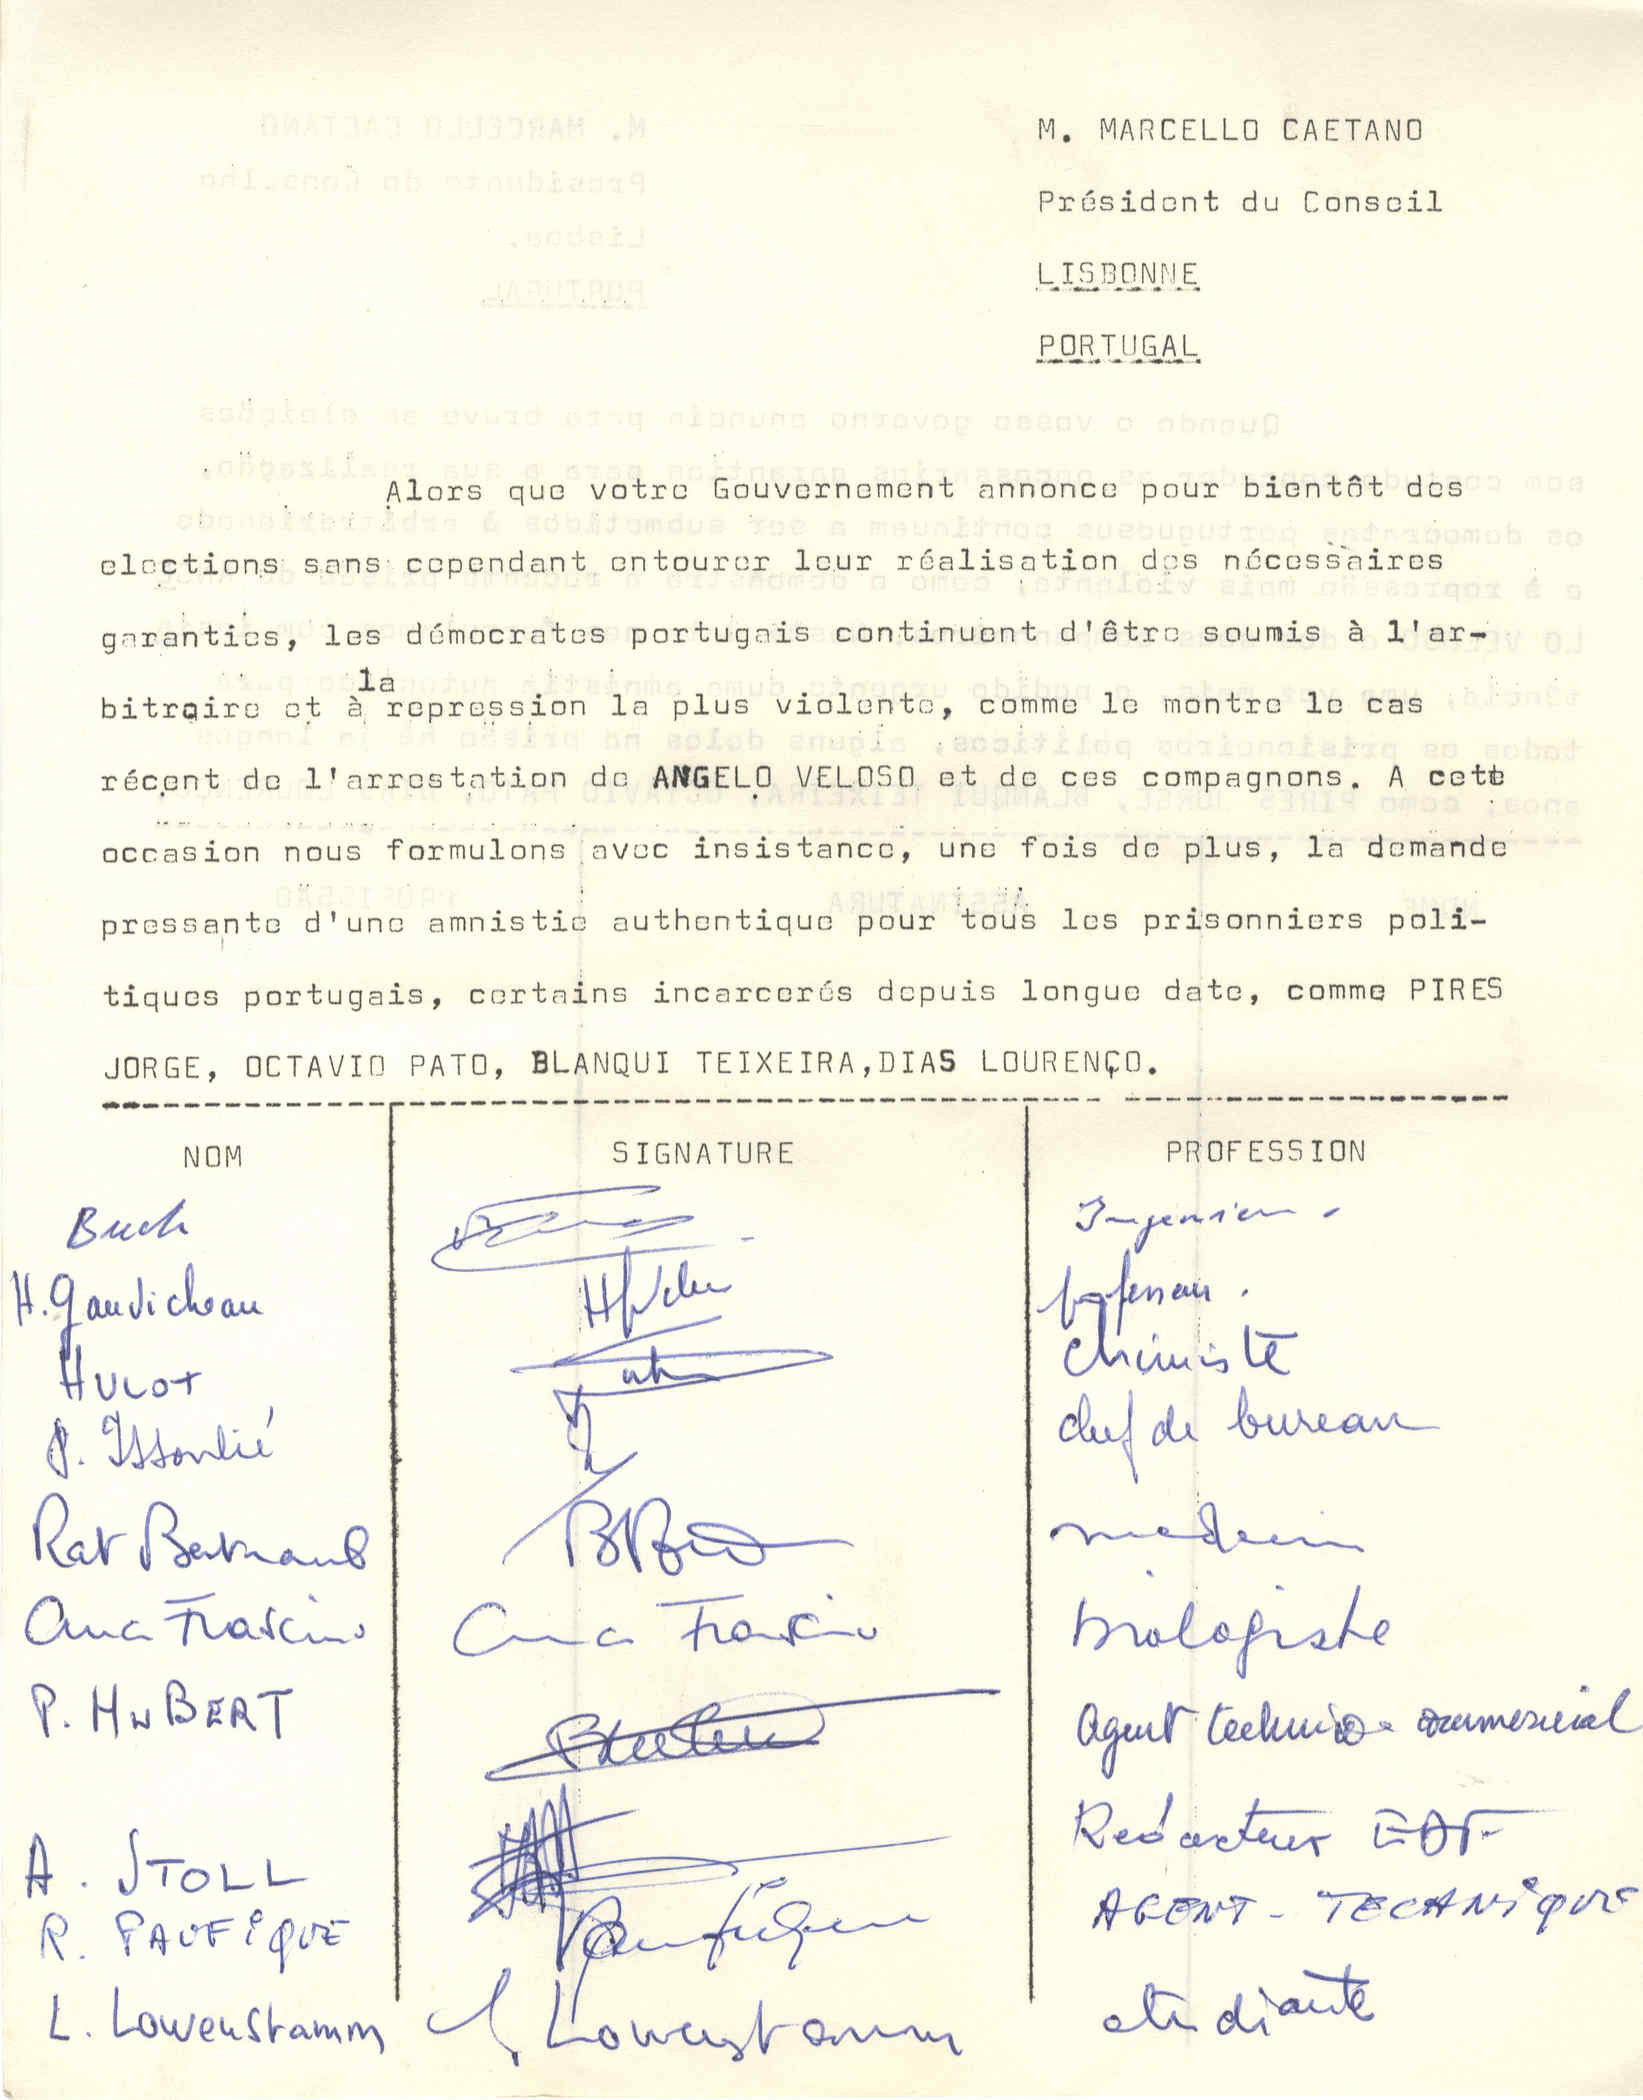 M. MARCELLO CAETANO
Président du Conseil
LISBONNE
PORTUGAL
Alors que votre Gouvernement annonce pour bientôt des
elections sans cependant entourer leur réalisation des nécessaires
garanties, les démocrates portugais continuent d'être soumis à l'ar-
la
bitraire et à repression la plus violente, comme le montre le cas
récent de l'arrestation de ANGELO VELOSO et de ces compagnons. A cette
occasion nous formulons avec insistance, une fois de plus, la demande
pressante d'une amnistie authentique pour tous les prisonniers poli-
tiques portugais, certains incarcerés depuis longue date, comme PIRES
JORGE, OCTAVIO PATO, BLANQUI TEIXEIRA,DIAS LOURENÇO.
NOM SIGNATURE PROFESSION
Buch Ingenieur
H. Gaudicheau professeur.
HULOT chimiste
P. Issoulié chef de bureau
Rat Bertrand médecin
Ana Frascino Ana Frascino biologiste
P. HuBERT Agent technico commercial
A. STOLL Redacteur EDF
R. PAUFiQUE Paufique AGENT - TECHNiQUE
L. Lowenstamm L. Lowenstamm etudiante